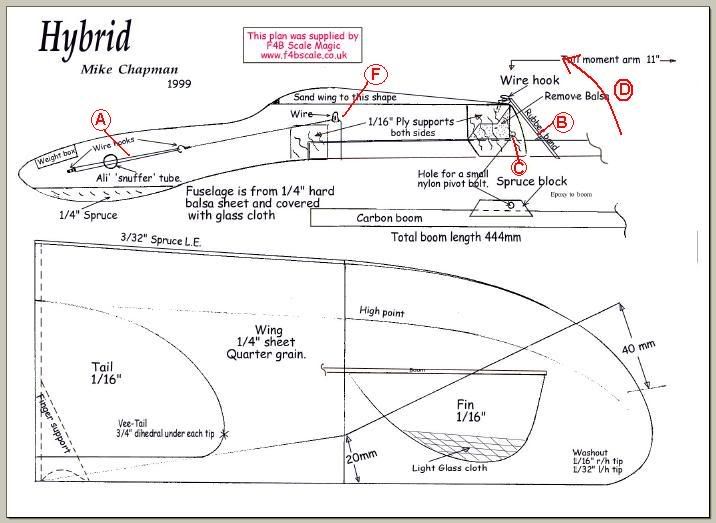 Hybrid
Mike Chapman
1999
This plan was supplied by
F4B Scale Magic
www.f4bscale.co.uk
moment arm 11"
D
Wire hook
F
Sand wing to this shape
Remove Balsa
A
Wire
1/16" Ply supports
both sides
Rubber band
B
Wire hooks
Weight box
C
Ali' 'snuffer' tube.
Hole for a small
nylon pivot bolt.
Spruce block
Epoxy to boom
1/4" Spruce
Fuselage is from 1/4" hard
balsa sheet and covered
with glass cloth
Carbon boom
Total boom length 444mm
3/32" Spruce L.E.
High point
Wing
1/4" sheet
Quarter grain.
40 mm
Tail
1/16"
Boom
Finger support
Fin
1/16"
Vee-Tail
3/4" dihedral under each tip
20mm
Light Glass cloth
Washout
1/16" r/h tip
1/32" l/h tip